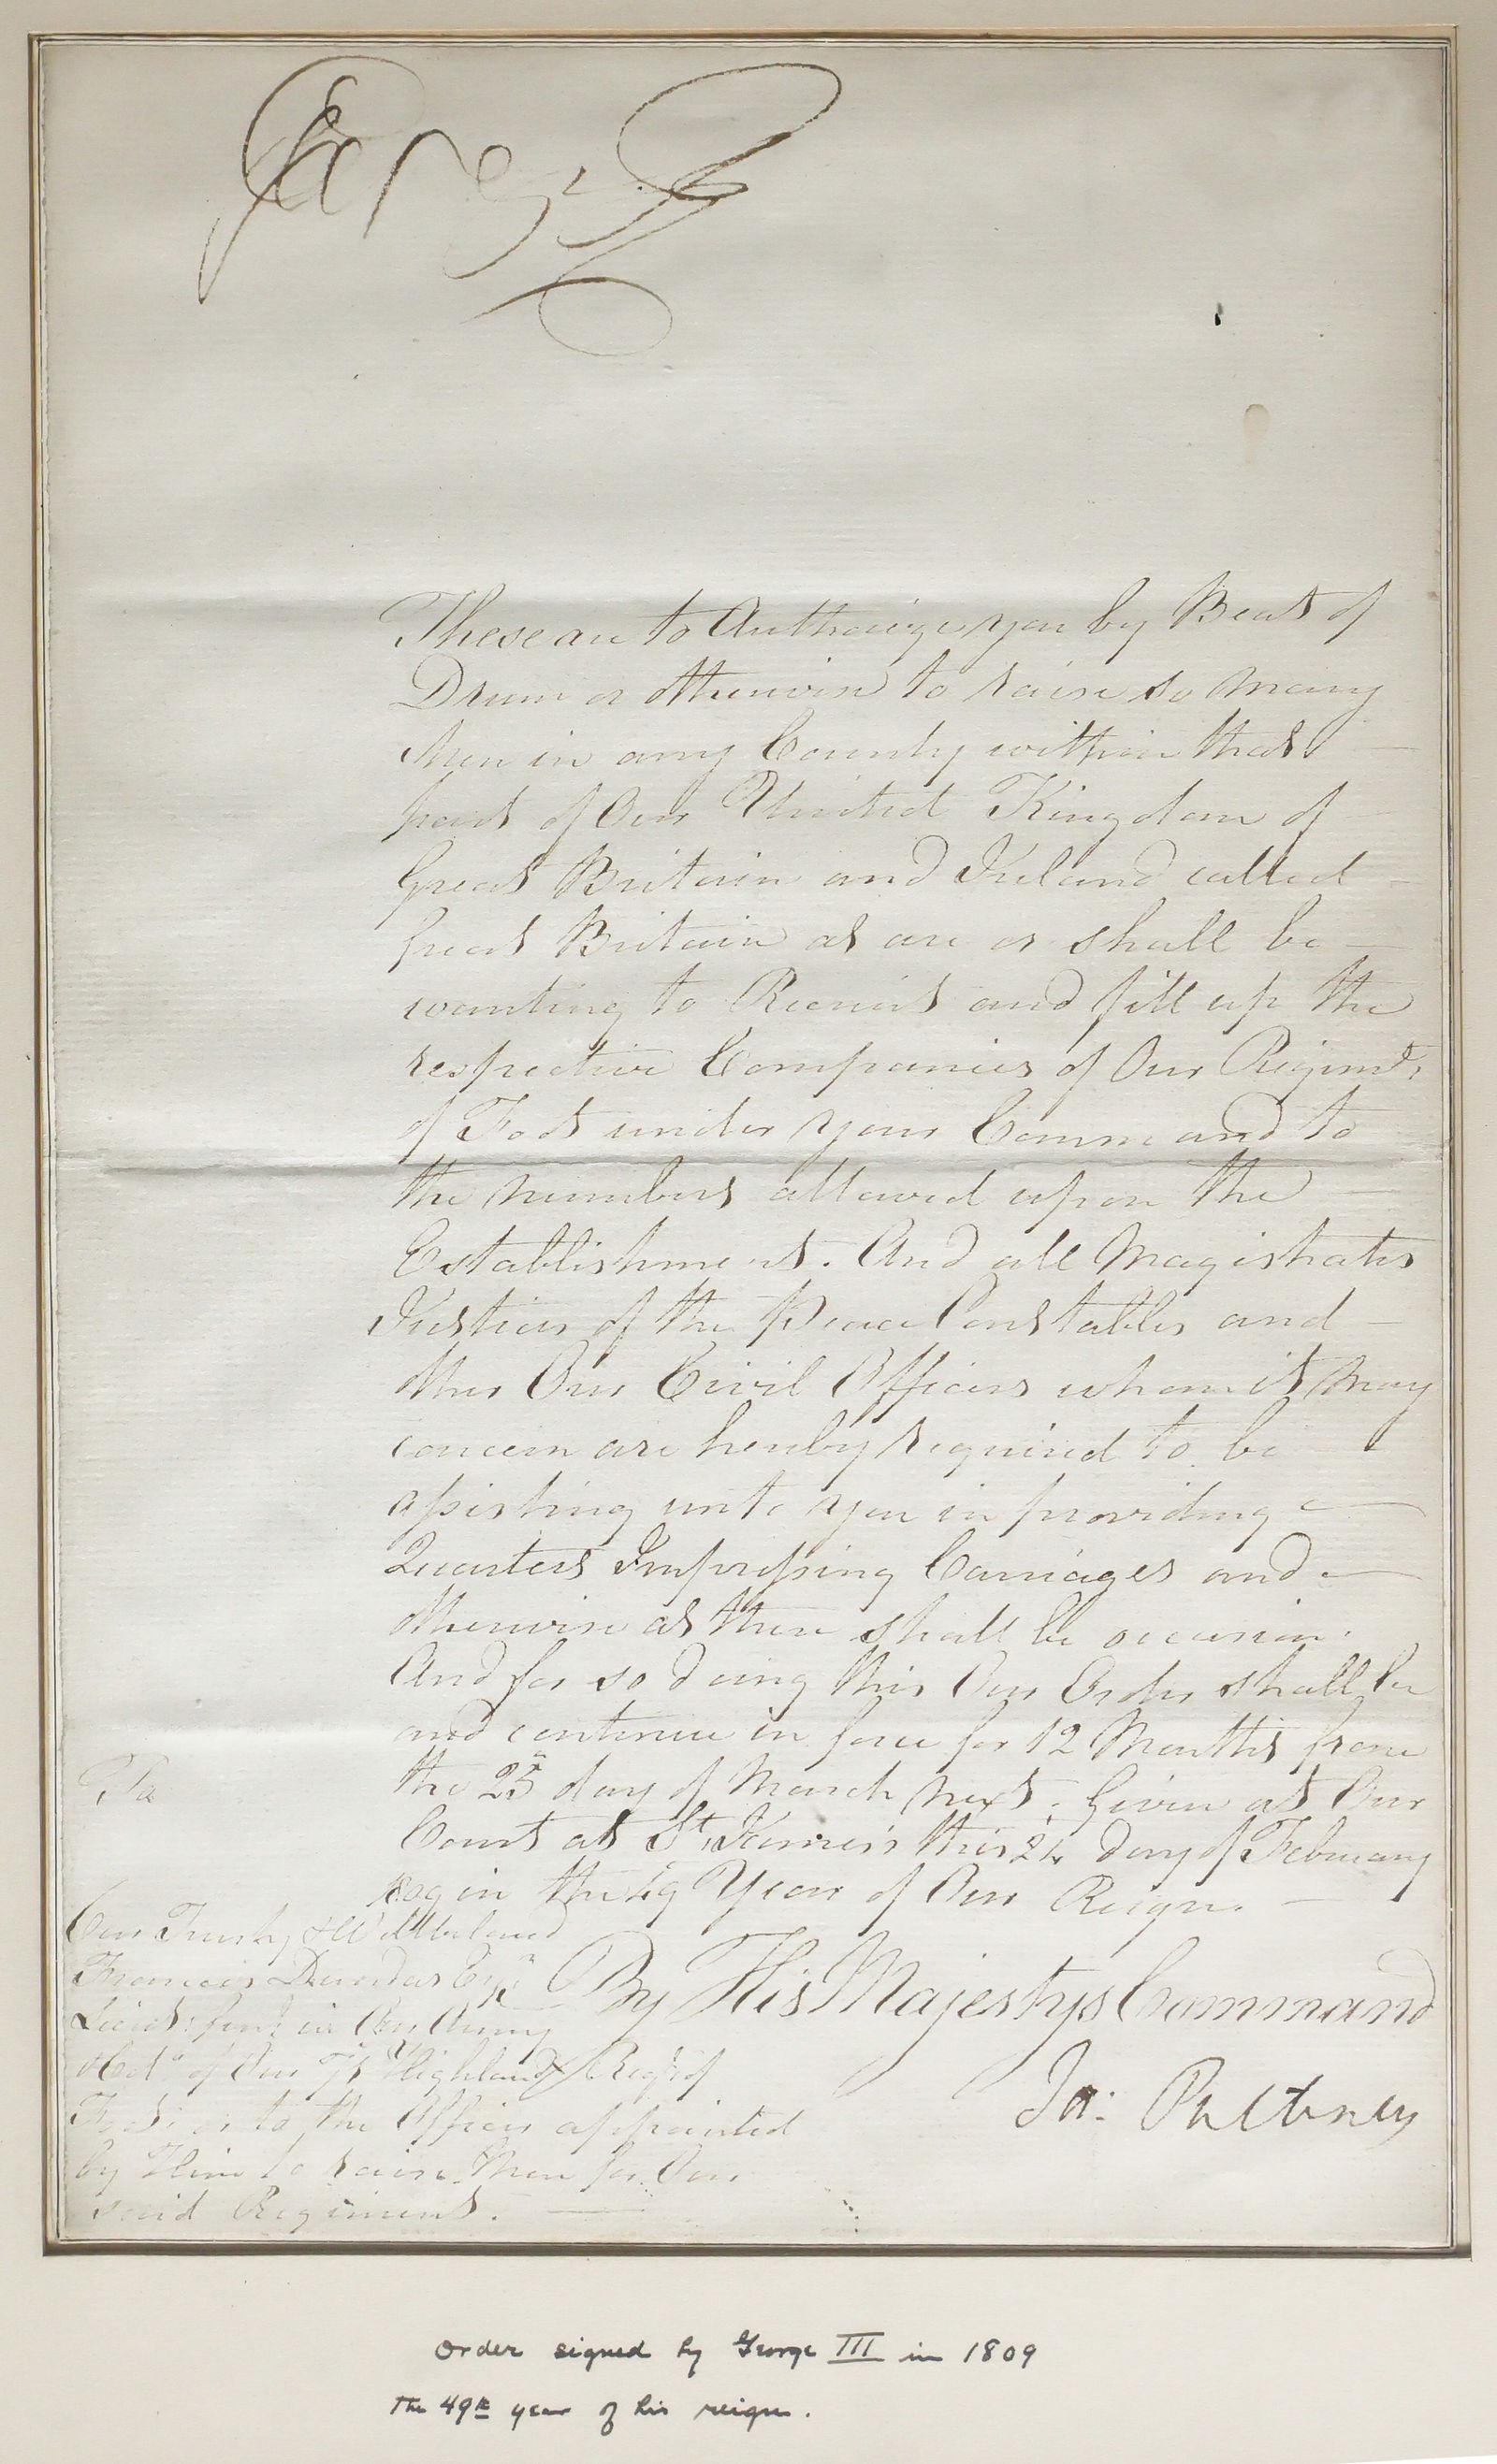 George R
These are to Authorize you by Beat of
Drum or otherwise to raise so many
Men in any County within that
part of Our United Kingdom of
Great Britain and Ireland called
Great Britain as are or shall be
wanting to Recruit and fill up the
respective Companies of Our Regimt.
of Foot under your Command to
the numbers allowed upon the
Establishment. And all Magistrates
Justices of the Peace Constables and
other Our Civil Officers whom it may
concern are hereby required to be
assisting unto you in providing
Quarters Impressing Carriages and
otherwise as there shall be occasion.
And for so doing this Our Order shall be
and continue in force for 12 Months from
the 25th day of March next. Given at Our
Court at St. James's this 24 day of February
1809 in the 49 Year of Our Reign.
By His Majestys Command
Ja: Pulteney
To
Our Trusty & Wellbeloved
Francis Dundas Esqr.
Lieut: Genl. in Our Army
& Col. of Our 71st Highland Regt. of
Foot: or to the Officer appointed
by Him to raise Men for Our
said Regiment.
Order signed by George III in 1809
The 49th year of his reign.